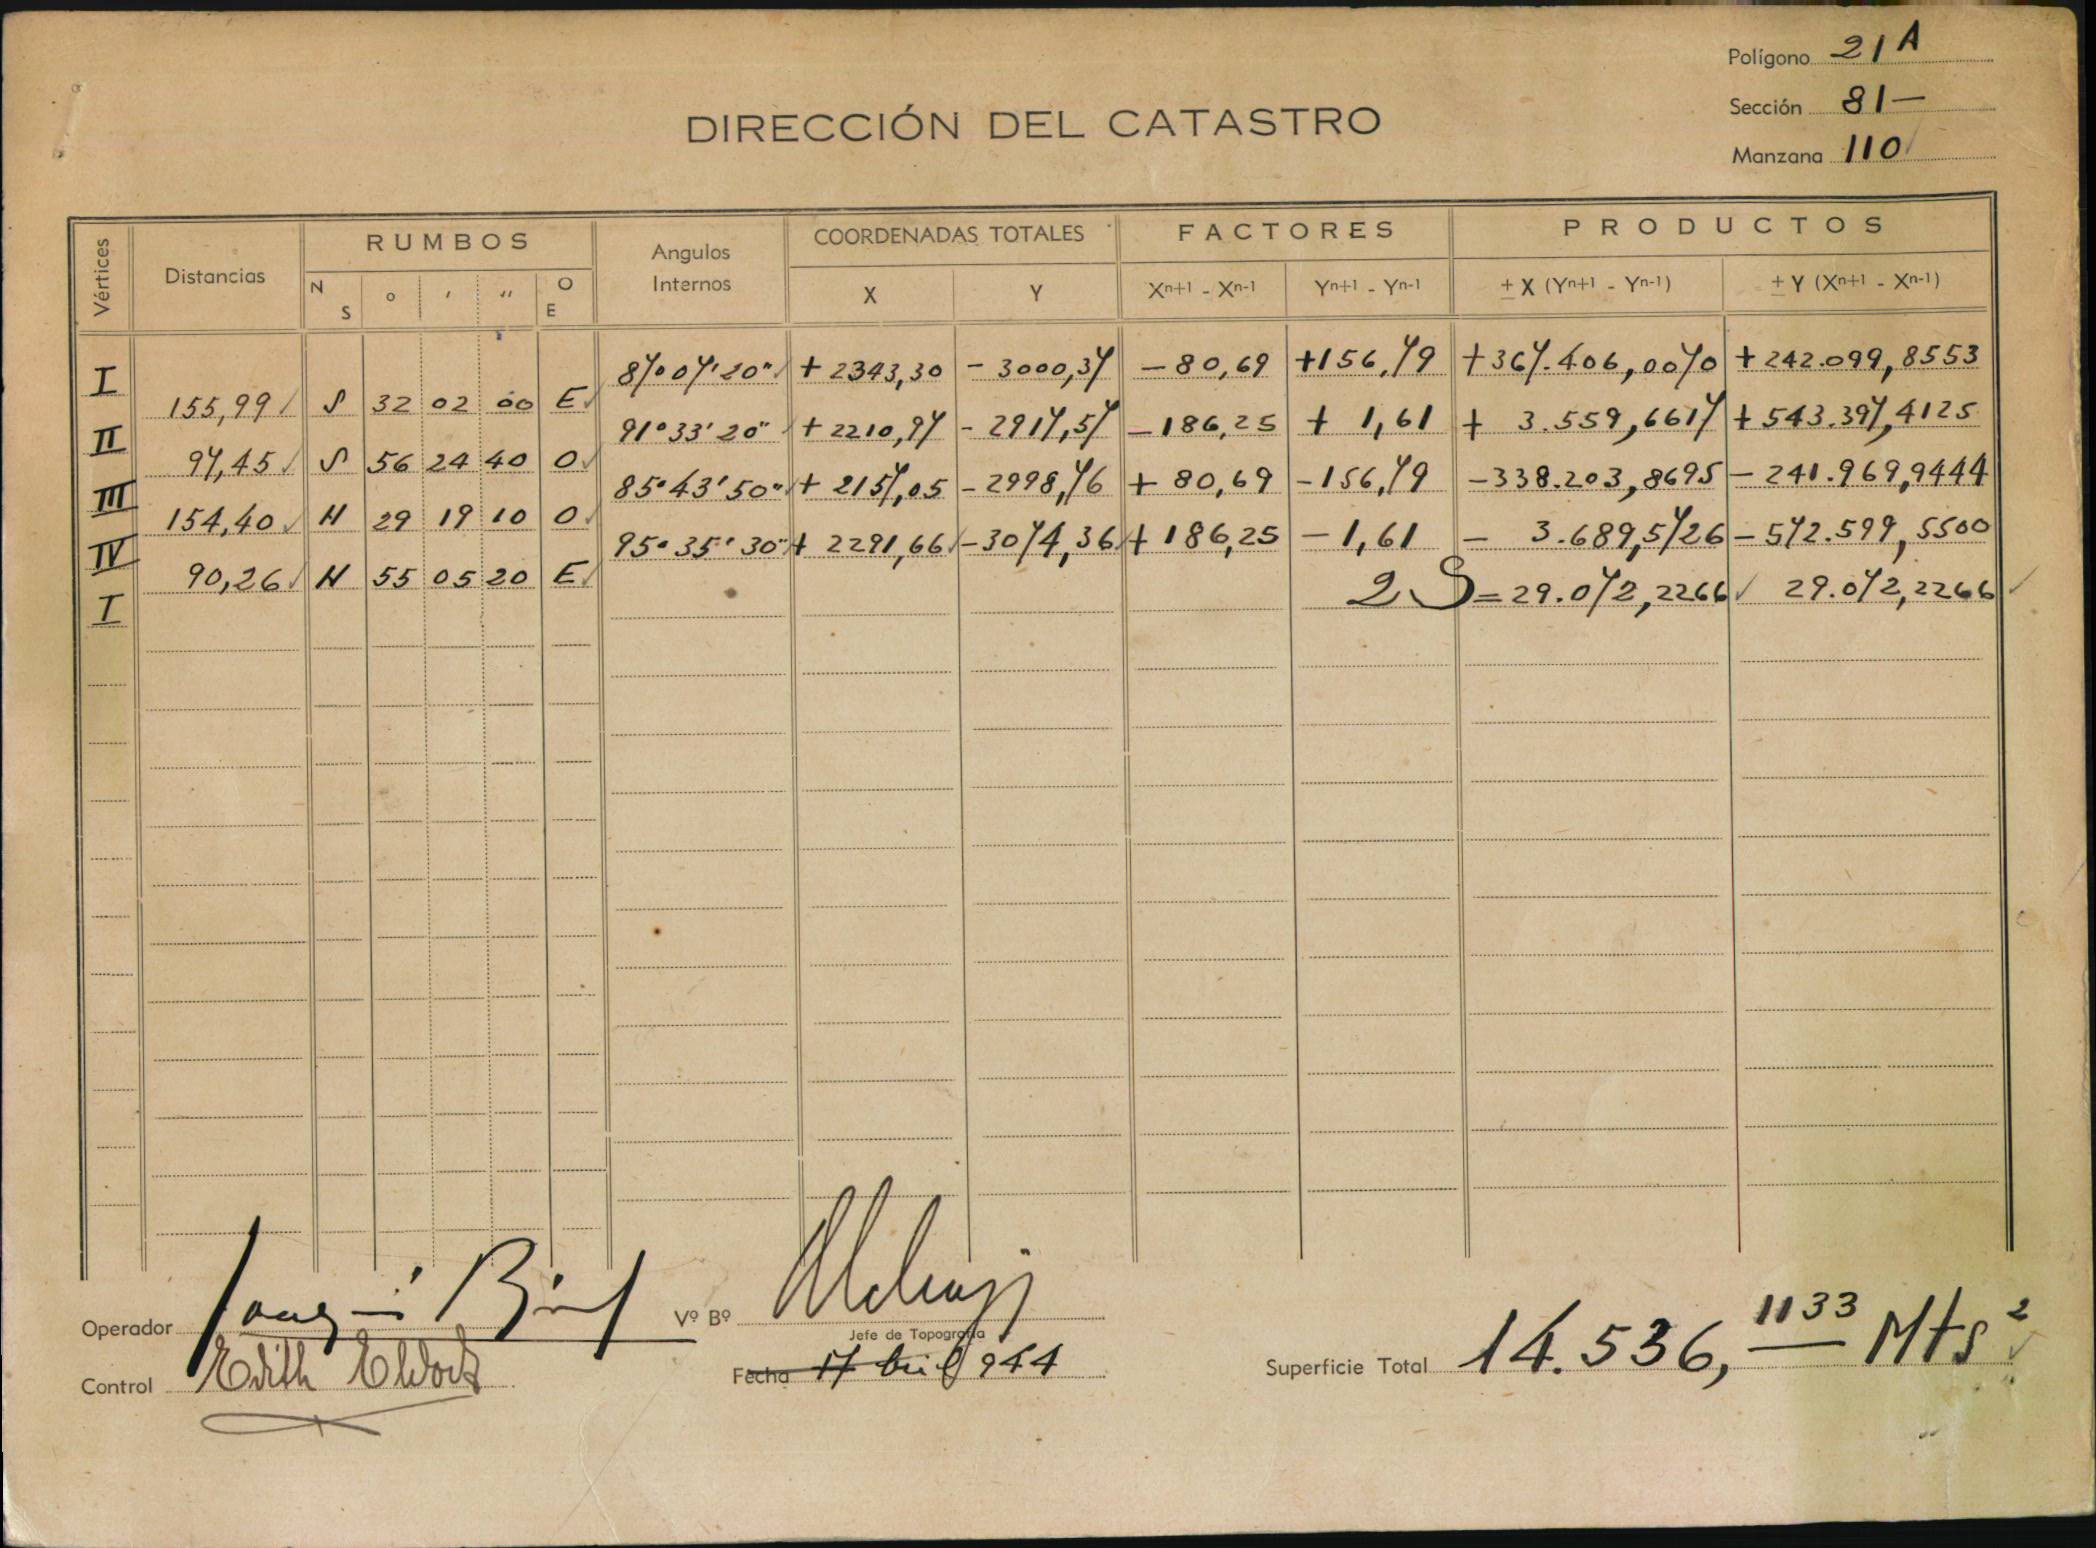 Polígono 21 A
Sección 81-
Manzana 110
DIRECCIÓN DEL CATASTRO
Vértices Distancias RUMBOS Angulos Internos COORDENADAS TOTALES FACTORES PRODUCTOS
N S ° ' '' O E X Y Xn+1 - Xn-1 Yn+1 - Yn-1 ± X (Yn+1 - Yn-1) ± Y (Xn+1 - Xn-1)
I 87°07'20" + 2343,30 - 3000,37 - 80,69 +156,79 +367.406,0070 + 242.099,8553
155,99 S 32 02 00 E
II 91°33'20" + 2210,97 - 2917,57 - 186,25 + 1,61 + 3.559,6617 + 543.397,4125
97,45 S 56 24 40 O
III 85°43'50" + 2157,05 - 2998,76 + 80,69 - 156,79 - 338.203,8695 - 241.969,9444
154,40 N 29 19 10 O
IV 95°35'30" + 2291,66 - 3074,36 + 186,25 - 1,61 - 3.689,5726 - 572.599,5500
90,26 N 55 05 20 E
I 2 S = 29.072,2266 29.072,2266
Operador Joaquin
Vº Bº
Jefe de Topografía
Control Edith
Fecha 17 abril 944
Superficie Total 14.536,1133 Mts 2